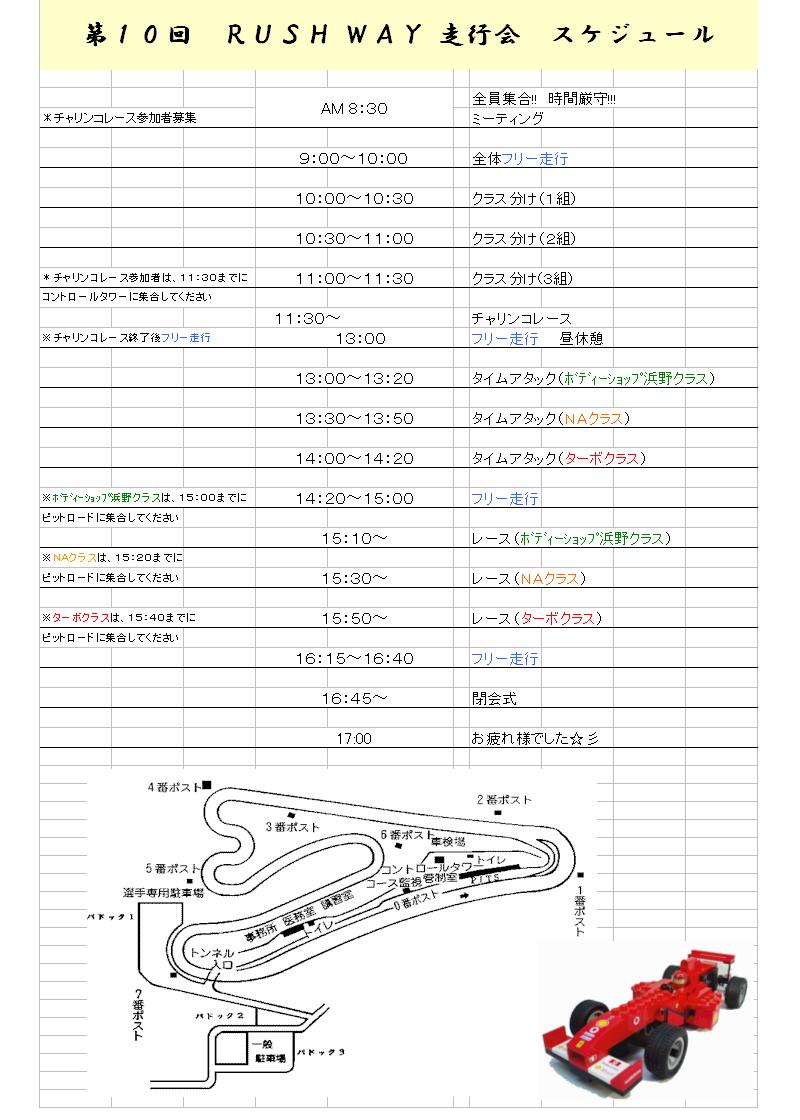 第１０回　ＲＵＳＨ ＷＡＹ 走行会　スケジュール
AM 8：30 全員集合!!　時間厳守!!!
＊チャリンコレース参加者募集 ミーティング
9：00～10：00 全体フリー走行
10：00～10：30 クラス分け（１組）
10：30～11：00 クラス分け（２組）
＊チャリンコレース参加者は、11：30までに 11：00～11：30 クラス分け（３組）
コントロールタワーに集合してください
11：30～ チャリンコレース
※チャリンコレース終了後フリー走行 13：00 フリー走行　昼休憩
13：00～13：20 タイムアタック（ﾎﾞﾃﾞｨｰｼｮｯﾌﾟ浜野クラス）
13：30～13：50 タイムアタック（ＮＡクラス）
14：00～14：20 タイムアタック（ターボクラス）
※ﾎﾞﾃﾞｨｰｼｮｯﾌﾟ浜野クラスは、15：00までに 14：20～15：00 フリー走行
ピットロードに集合してください
15：10～ レース（ﾎﾞﾃﾞｨｰｼｮｯﾌﾟ浜野クラス）
※ＮＡクラスは、15：20までに
ピットロードに集合してください 15：30～ レース（ＮＡクラス）
※ターボクラスは、15：40までに 15：50～ レース（ターボクラス）
ピットロードに集合してください
16：15～16：40 フリー走行
16：45～ 閉会式
17:00 お疲れ様でした☆彡
4番ポスト
2番ポスト
3番ポスト
6番ポスト
車検場
5番ポスト
トイレ
コントロールタワー
管制室
コース監視
PITS
選手専用駐車場
0番ポスト
1番ポスト
パドック1
事務所 医務室 講習室
トイレ
トンネル
入口
7番ポスト
パドック2
一般
駐車場
パドック3